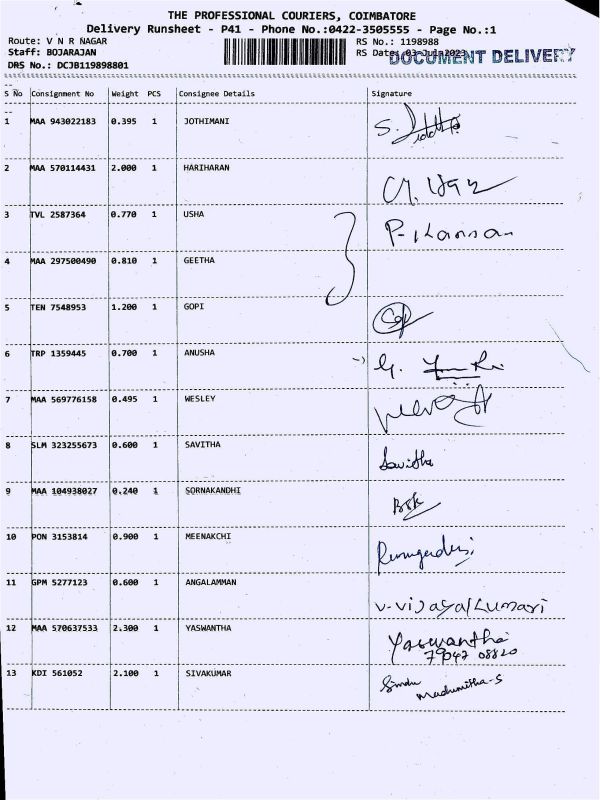 THE PROFESSIONAL COURIERS, COIMBATORE
Delivery Runsheet - P41 - Phone No.:0422-3505555 - Page No.:1
Route: V N R NAGAR
RS No.: 1198988
Staff: BOJARAJAN
RS Date: 03-Jul-2023
DOCUMENT DELIVERY
DRS No.: DCJB119898801
S No Consignment No Weight PCS Consignee Details Signature
1 MAA 943022183 0.395 1 JOTHIMANI
2 MAA 570114431 2.000 1 HARIHARAN
3 TVL 2587364 0.770 1 USHA P-Kannan
4 MAA 297500490 0.810 1 GEETHA
5 TEN 7548953 1.200 1 GOPI
6 TRP 1359445 0.700 1 ANUSHA
7 MAA 569776158 0.495 1 WESLEY
8 SLM 323255673 0.600 1 SAVITHA Savitha
9 MAA 104938027 0.240 1 SORNAKANDHI
10 PON 3153814 0.900 1 MEENAKCHI
11 GPM 5277123 0.600 1 ANGALAMMAN V-Vijayalkumari
12 MAA 570637533 2.300 1 YASWANTHA Yaswantha
79047 08820
13 KDI 561052 2.100 1 SIVAKUMAR Sindhu
Madumitha-S